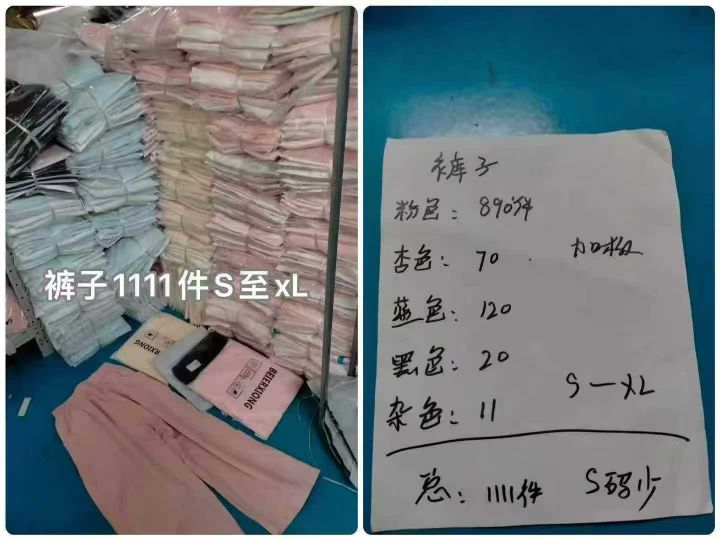 裤子1111件S至xL
BEIERXIONG
裤子
粉色：890件
杏色：70
加极
蓝色：120
黑色：20
S—XL
杂色：11
总：1111件
S码少